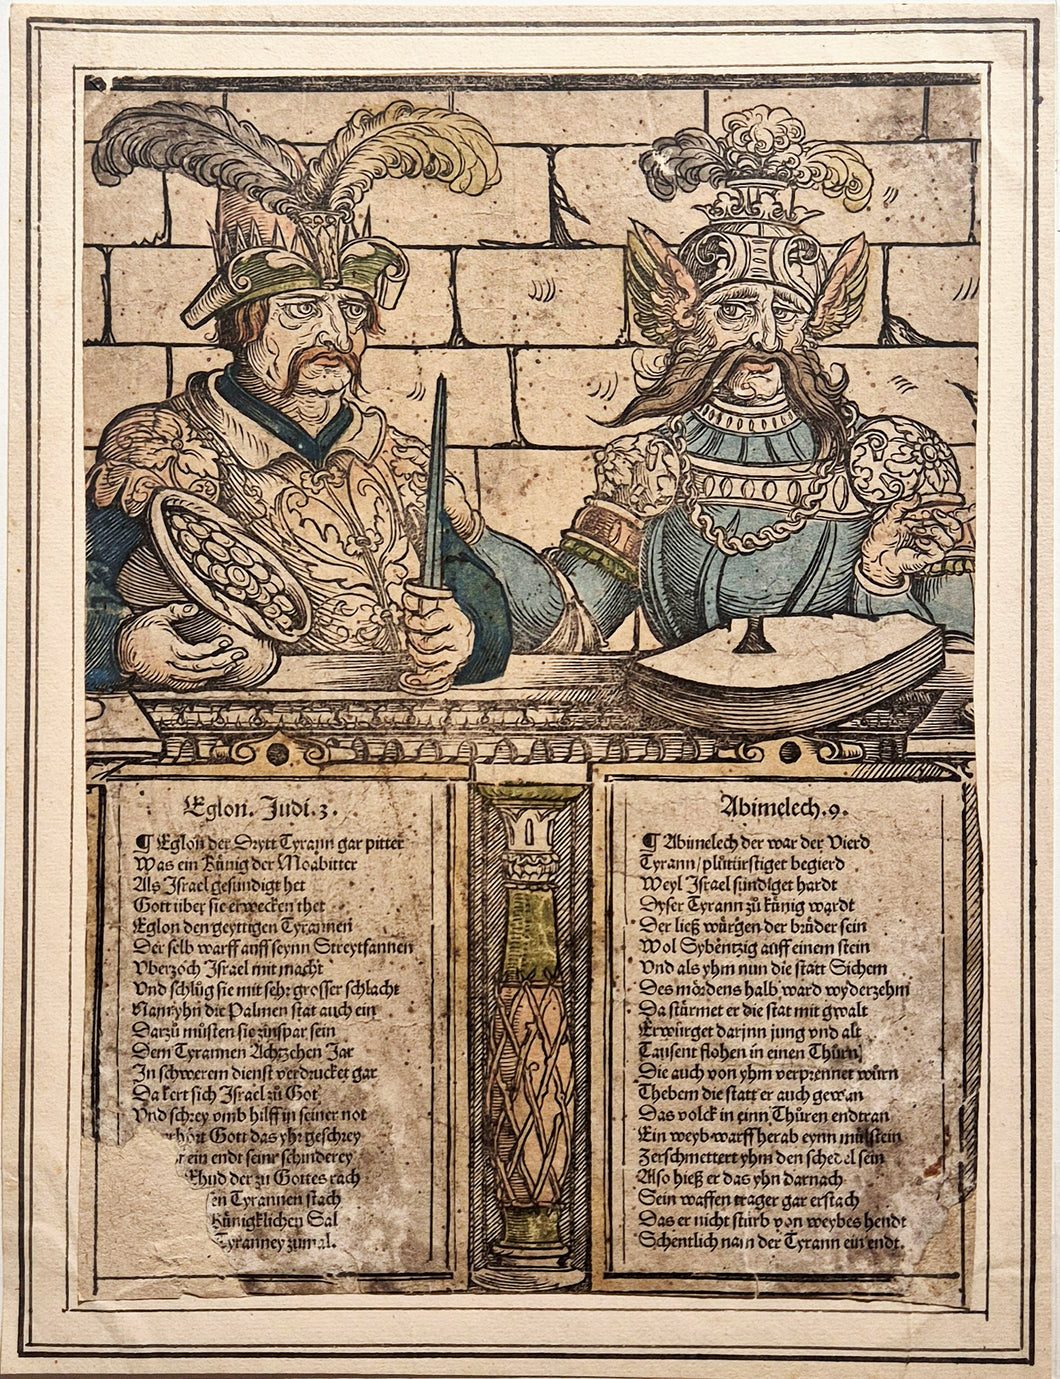 Eglon. Judi. 3.
¶ Eglon der Drytt Tyrann gar pitter
Was ein Künig der Moabitter
Als Israel gesündigt het
Gott uber sie erwecken thet
Eglon den geyttigen Tyrannen
Der selb warff auff seynn Streytfannen
Vberzoch Israel mit macht
Vnd schlůg sie mit sehr grosser schlacht
Nam yhn die Palmen stat auch ein
Darzů můsten sie zinspar sein
Dem Tyrannen Achzehen Jar
In schwerem dienst verdrucket gar
Da kert sich Israel zů Got
Vnd schrey vmb hilff in seiner not
Gott das yhr geschrey
ein endt seinr schinderey
Ehud der zu Gottes rach
Tyrannen stach
Künigklichen Sal
Tyranney zumal.
Abimelech. 9.
¶ Abimelech der war der Vierd
Tyrann / plůtürstiger begierd
Weyl Israel sündiget hardt
Dyser Tyrann zů künig wardt
Der ließ würgen der brüder sein
Wol Sybentzig auff einem stein
Vnd als yhm nun die statt Sichem
Des mördens halb ward wyderzehm
Da stürmet er die stat mit gwalt
Erwürget darjnn jung vnd alt
Tausent flohen in einen Thůrn
Die auch von yhm verprennet wůrn
Thebem die statt er auch gewan
Das volck in einn Thůren endtran
Ein weyb warff herab eynn mülstein
Zerschmettert yhm den schedel sein
Also hieß er das yhn darnach
Sein waffen trager gar erstach
Das er nicht stürb von weybes hendt
Schentlich nam der Tyrann ein endt.